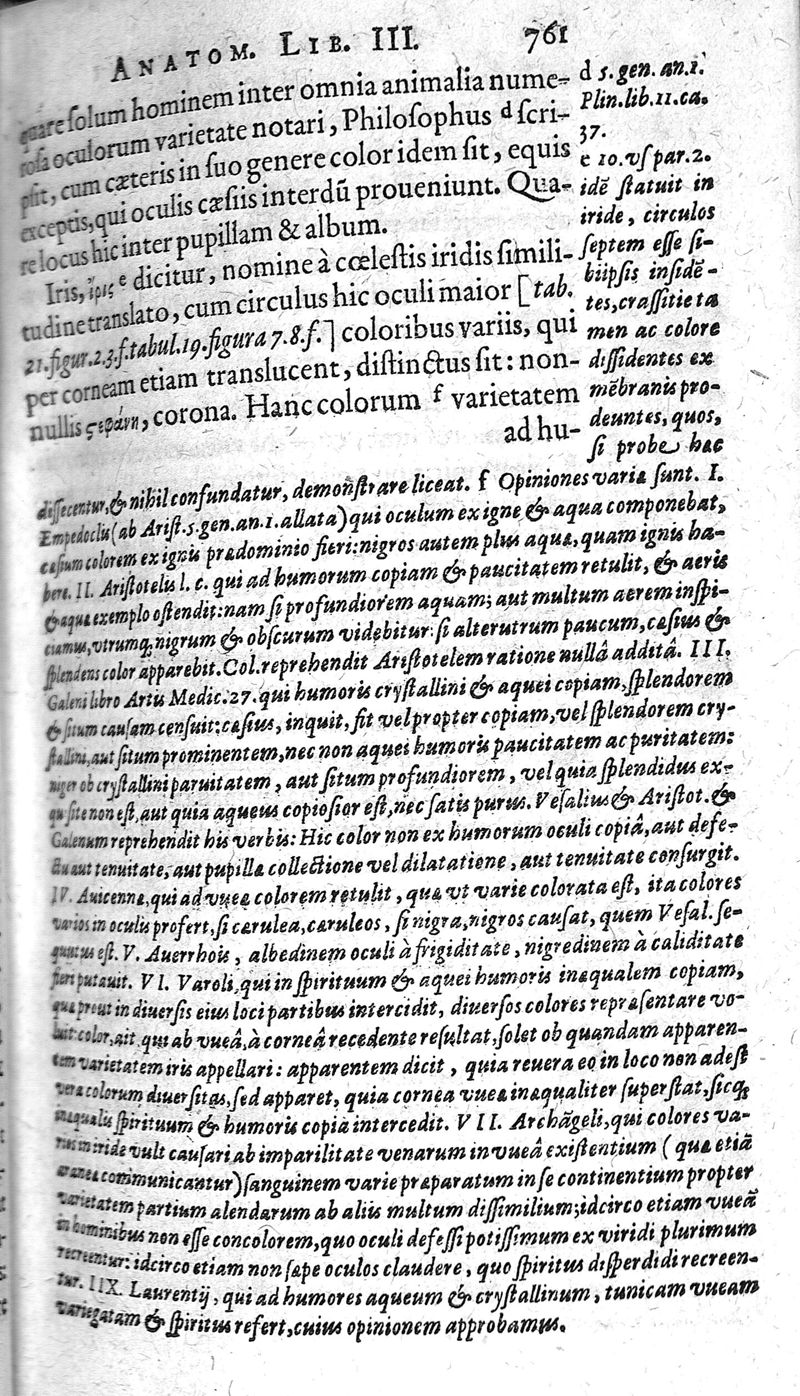 ANATOM. LIB. III. 761
quare ſolum hominem inter omnia animalia nume-
roſa oculorum varietate notari, Philoſophus d ſcri-
pſit, cum cæteris in ſuo genere color idem ſit, equis
exceptis, qui oculis cæſiis interdū proueniunt. Qua-
re locus hic inter pupillam & album.
Iris, ἶρις e dicitur, nomine à cœleſtis iridis ſimili-
tudine translato, cum circulus hic oculi maior [tab.
21. figur. 2.3.f. tabul. 19. figura 7.8.f.] coloribus variis, qui
per corneam etiam translucent, diſtinctus ſit: non-
nullis ςεφάνη, corona. Hanc colorum f varietatem
ad hu-
d 5. gen. an. 1.
Plin. lib. 11. ca.
37.
e 10. vſ par. 2.
idē ſtatuit in
iride, circulos
ſeptem eſſe ſi-
biipſis inſidē-
tes, craſſitie ta
men ac colore
diſſidentes ex
mēbranis pro-
deuntes, quos,
ſi probe hæc
diſſecentur, & nihil confundatur, demonſtrare liceat. f Opiniones variæ ſunt. I.
Empedoclis (ab Ariſt. 5. gen. an. 1. allata) qui oculum ex igne & aqua componebat,
cæſium colorem ex ignis prædominio fieri: nigros autem plus aquæ, quam ignis ha-
bere. II. Ariſtotelis l. c. qui ad humorum copiam & paucitatem retulit, & aeris
& aquæ exemplo oſtendit: nam ſi profundiorem aquam; aut multum aerem inſpi-
ciamus, vtrumq; nigrum & obſcurum videbitur: ſi alterutrum paucum, cæſius &
ſplendens color apparebit. Col. reprehendit Ariſtotelem ratione nullâ additâ. III.
Galeni libro Artis Medic. 27. qui humoris cryſtallini & aquei copiam, ſplendorem
& ſitum cauſam cenſuit: cæſius, inquit, fit vel propter copiam, vel ſplendorem cry-
ſtallini, aut ſitum prominentem, nec non aquei humoris paucitatem ac puritatem:
niger ob cryſtallini paruitatem, aut ſitum profundiorem, vel quia ſplendidus ex-
quiſite non eſt, aut quia aqueus copioſior eſt, nec ſatis purus. Veſalius & Ariſtot. &
Galenum reprehendit his verbis: Hic color non ex humorum oculi copiâ, aut defe-
ctu aut tenuitate, aut pupillæ collectione vel dilatatione, aut tenuitate conſurgit.
IV. Auicennæ, qui ad vueæ colorem retulit, quæ vt varie colorata eſt, ita colores
varios in oculis profert, ſi cærulea, cæruleos, ſi nigra, nigros cauſat, quem Veſal. ſe-
quutus eſt. V. Auerrhois, albedinem oculi à frigiditate, nigredinem à caliditate
fieri putauit. VI. Varoli, qui in ſpirituum & aquei humoris inæqualem copiam,
quæ prout in diuerſis eius loci partibus intercidit, diuerſos colores repræſentare vo-
luit: color, ait, qui ab vueâ, à corneâ recedente reſultat, ſolet ob quandam apparen-
tem varietatem iris appellari: apparentem dicit, quia reuera eo in loco non adeſt
vera colorum diuerſitas, ſed apparet, quia cornea vueæ inæqualiter ſuperſtat, ſicq;
inæqualis ſpirituum & humoris copia intercedit. VII. Archāgeli, qui colores va-
rios in iride vult cauſari ab imparilitate venarum in vueâ exiſtentium (quæ etiā
araneæ communicantur) ſanguinem varie præparatum in ſe continentium propter
varietatem partium alendarum ab aliis multum diſſimilium; idcirco etiam vueā
in hominibus non eſſe concolorem, quo oculi defeſſi potiſſimum ex viridi plurimum
recreentur: idcirco etiam non ſæpe oculos claudere, quo ſpiritus diſperdidi recreen-
tur. IIX. Laurentij, qui ad humores aqueum & cryſtallinum, tunicam vueam
variegatam & ſpiritus refert, cuius opinionem approbamus.